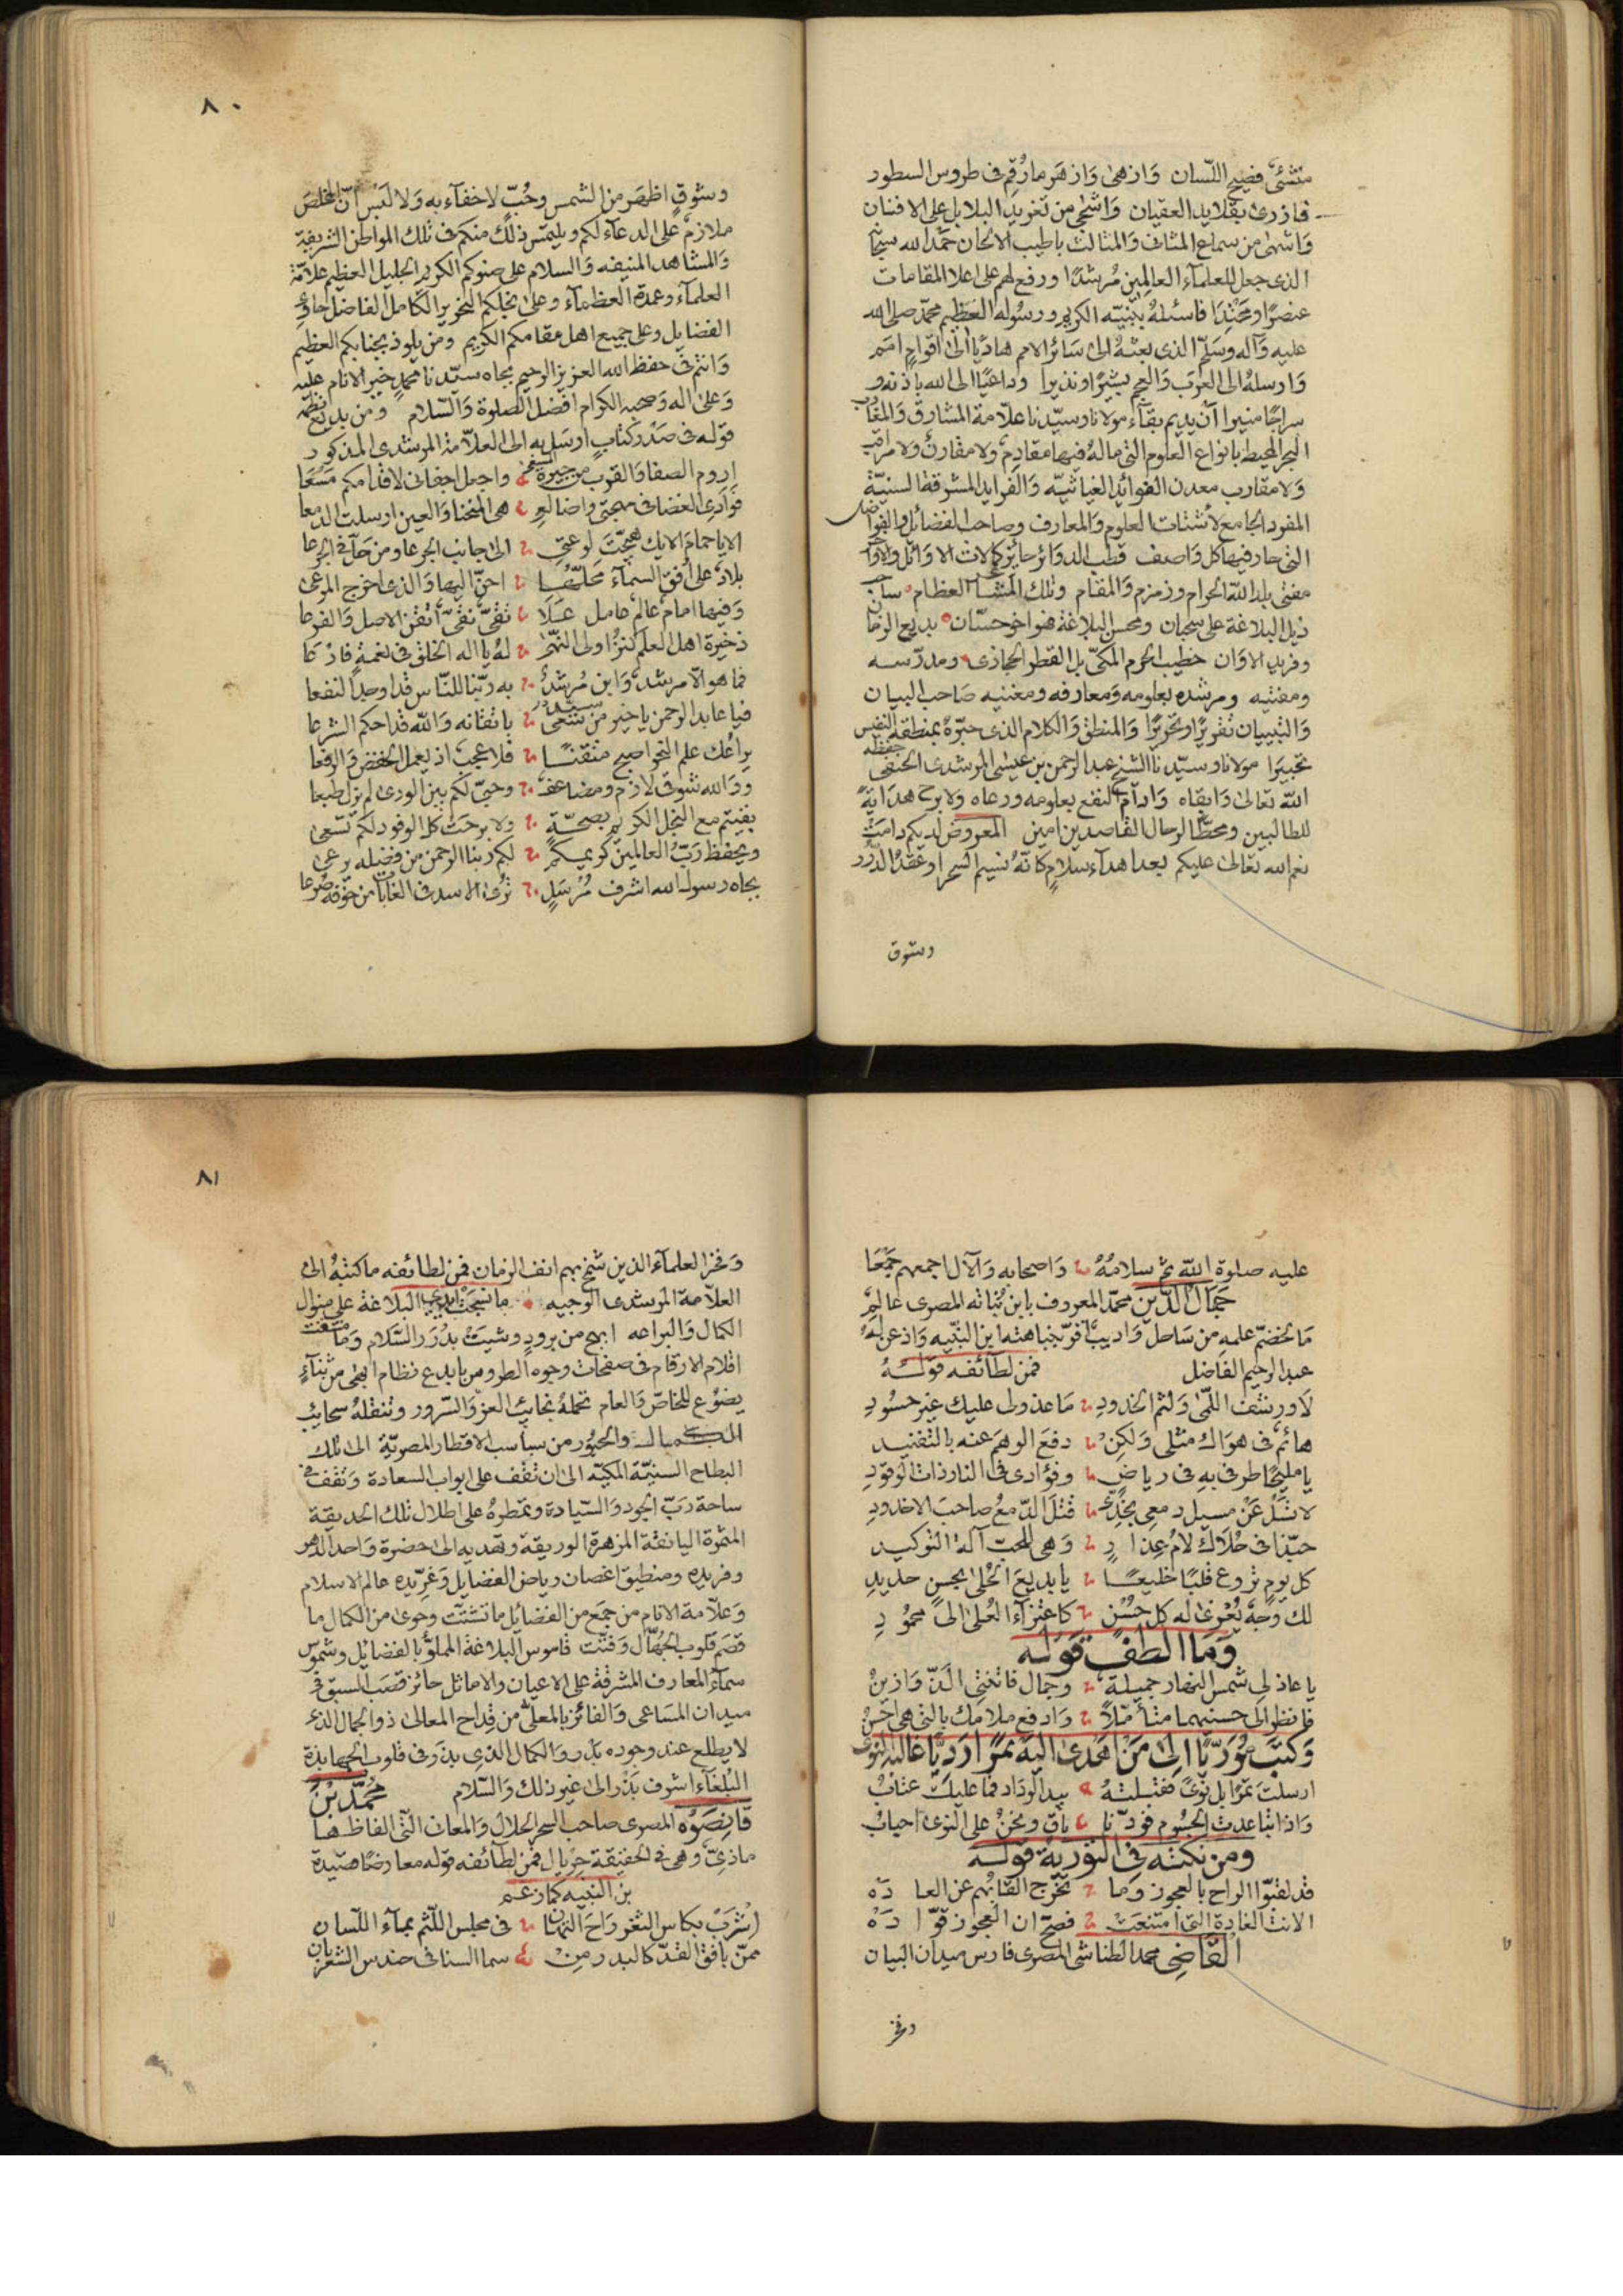 منشئ فصيح اللسان وازهى وازهر ما رقم في طروس السطور
فازرى بقلايد العقيان واشجى من تغريد البلابل على الافنان
واشهى من سماع المثاني والمثالث باطيب الالحان حمد الله سبحانه
الذي جعل للعلماء العالمين مرشدا ورفع لهم على اعلا المقامات
عنصرا ومحتدا فاسئله بنبيه الكريم ورسوله العظيم محمد صلى الله
عليه وآله وسلم الذي بعثه الى سائر الامم هاديا الى اقوام امم
وارسله الى العرب والعجم بشيرا ونذيرا وداعيا الى الله باذنه و
سراجا منيرا ان يديم بقاء مولانا وسيدنا علامة المشارق والمغارب
البحر المحيط بانواع العلوم التي ماله فيها مقادم ولا مقارن ولا مراقب
ولا مقارب معدن الفوائد الغياثيه والفرايد المشرقة السنية
المفرد الجامع لاشتات العلوم والمعارف وصاحب الفضائل والفواضل
التي حار فيها كل واصف قطب الدوائر حائز كمالات الاوائل والاواخر
مفتي بلد الله الحرام وزمزم والمقام وتلك المشاعر العظام ساحب
ذيل البلاغة على سحبان ومحسن البلاغة فهو اخو حسان بديع الزمان
وفريد الاوان خطيب الحرم المكي بل القطر الحجازي ومدرسه
ومفتيه ومرشده بعلومه ومعارفه ومغنيه صاحب البيان
والتبيان تقريرا وتحريرا والمنطق والكلام الذي حبره بمنطقه النفيس
تحبيرا مولانا وسيدنا الشيخ عبد الرحمن بن عيسى المرشدي الحنفي حفظه
الله تعالى وابقاه وادام النفع بعلومه ورعاه ولا برح هداية
للطالبين ومحط الرحال القاصدين امين المعروض لديكم دامت
نعم الله تعالى عليكم بعد اهداء سلام كانه نسيم السحر او عقد الدرر
وشوق
٨٠
وشوق اظهر من الشمس وحب لا خفاء به ولا لبس ان المخلص
ملازم على الدعاء لكم ويلتمس ذلك منكم في تلك المواطن الشريفة
والمشاهد المنيفه والسلام على صنوكم الكريم الجليل العظيم علامة
العلماء وعمدة العظماء وعلى نجلكم النحرير الكامل الفاضل حاوي
الفضايل وعلى جميع اهل مقامكم الكريم ومن يلوذ بجنابكم العظيم
وانتم في حفظ الله العزيز الرحيم بجاه سيدنا محمد خير الانام عليه
وعلى اله وصحبه الكرام افضل الصلوة والسلام ومن بديع نظمه
قوله في صدر كتاب ارسل به الى العلامة المرشدي المذكور
اروم الصفا والقرب من جيرة واجعل اجفاني لاقدامكم مسعا
فوادي الغضا في مهجتي واضالعي هي المنحنا والعين ارسلت الدمعا
الا يا حمام الايك هيجت لوعتي الى جانب الجرعا ومن حل في الجرعا
بلاد على افق السماء محلها احن اليها والذي اخرج المرعى
وفيها امام عالم عامل علا تقي نقي اتقن الاصل والفرعا
ذخيرة اهل العلم كنز اولي النهى له يا اله الخلق في نعمة فارعا
فما هو الا مرشد وابن مرشد به ربنا للناس قد اوجد النفعا
فيا عابد الرحمن يا خير من باتقانه والله قد احكم الشرعا
يراعك علم النحو اصبح متقنا فلا عجب اذ يعمل الخفض والرفعا
وو الله شوقي لازم ومضاعف وحبي لكم بين الورى لم يزل طبعا
بقيتم مع النجل الكريم بصحة ولا برحت كل الوفود لكم تسعى
ويحفظ رب العالمين كريمكم لكم ربنا الرحمن من فضله يرعى
بجاه رسول الله اشرف مرسل ترى الاسد في الغابات من خوفه صرعا
عليه صلوة الله ثم سلامه واصحابه والآل اجمعهم جمعا
جمال الدين محمد المعروف بابن نباته المصري عالم
ما لخضم علمه من ساحل واديب اقر بنباهته ابن النبيه واذعن له
عبد الرحيم الفاضل فمن لطائفه قوله
لا ورشف اللمى ولثم الخدود ما عذولي عليك غير حسود
هائم في هواك مثلي ولكن دفع الوهم عنه بالتفنيد
يا مليحا طرفي به في رياض وفؤادي في النار ذات الوقود
لا تسل عن مسيل دمعي بخدي قتل الدمع صاحب الاخدود
حبذا في حلاك لام عذار وهي للحب آلة التوكيد
كل يوم تروع قلبا خليعا يا بديع الحلى بحسن جديد
لك وجه يعزى له كل حسن كاعتزاء العلى الى محمود
وما الطف قوله
يا عاذلي شمس النهار جميلة وجمال فاتنتي الذ وازين
فانظر الى حسنيهما متأملا وادفع ملامك بالتي هي احسن
وكتب موريا الى من اهدى اليه تمرا رديا غالبه النوى
ارسلت تمرا بل نوى فقبلته بيد الوداد فما عليك عتاب
واذا تباعدت الجسوم فودنا باق ونحن على النوى احباب
ومن نكته في التورية قوله
قد لقبوا الراح بالعجوز وما تخرج القابهم عن العاده
الانت الغادة التي امتنعت فصح ان العجوز قواده
القاضي محمد الطناشي المصري فارس ميدان البيان
وفخر
٨١
وفخر العلماء الذين شمخ بهم انف الزمان فمن لطائفه ما كتبه الى
العلامة المرشدي الوجيه ما نسجت ايدي البلاغة على منوال
الكمال والبراعه ابهج من برود وشيت بدرر السلام وما نمقت
اقلام الارقام في صفحات وجوه الطروس بابدع نظام ابهى من ثناء
يضوع للخاص والعام تحمله نجائب العز والسرور وتنقله سحائب
والحبور من سباسب الاقطار المصرية الى تلك
البطاح السنية المكية الى ان تقف على ابواب السعادة وتقف في
ساحة رب الجود والسيادة وتمطره على اطلال تلك الحديقة
المثمرة اليانقة المزهرة الوريقة وتهديه الى حضرة واحد الدهر
وفريده ومنطيق اغصان رياض الفضايل وغريده عالم الاسلام
وعلامة الانام من جمع من الفضائل ما تشتت وحوى من الكمال ما
قصم قلوب الجهال وفتت قاموس البلاغة المملو بالفضايل وشموس
سماء المعارف المشرقة على الاعيان والاماثل حائز قصب السبق في
ميدان المساعي والفائز بالمعلى من قداح المعالي ذو الجمال الذي
لا يطلع عند وجوده بدر والكمال الذي بذر في قلوب الجهابذة
البلغاء اشرف بذر الى غير ذلك والسلام محمد بن
قانصوه المصري صاحب السحر الحلال والمعاني التي الفاظها
ماذي وهي في الحقيقة جريال فمن لطائفه قوله معارضا قصيدة
بن النبيه كما زعم
اشرب بكاس الثغر راح التهان في مجلس اللثم بماء اللسان
ممن بافق القد كالبدر من سما السنا في حندس الشعر بان